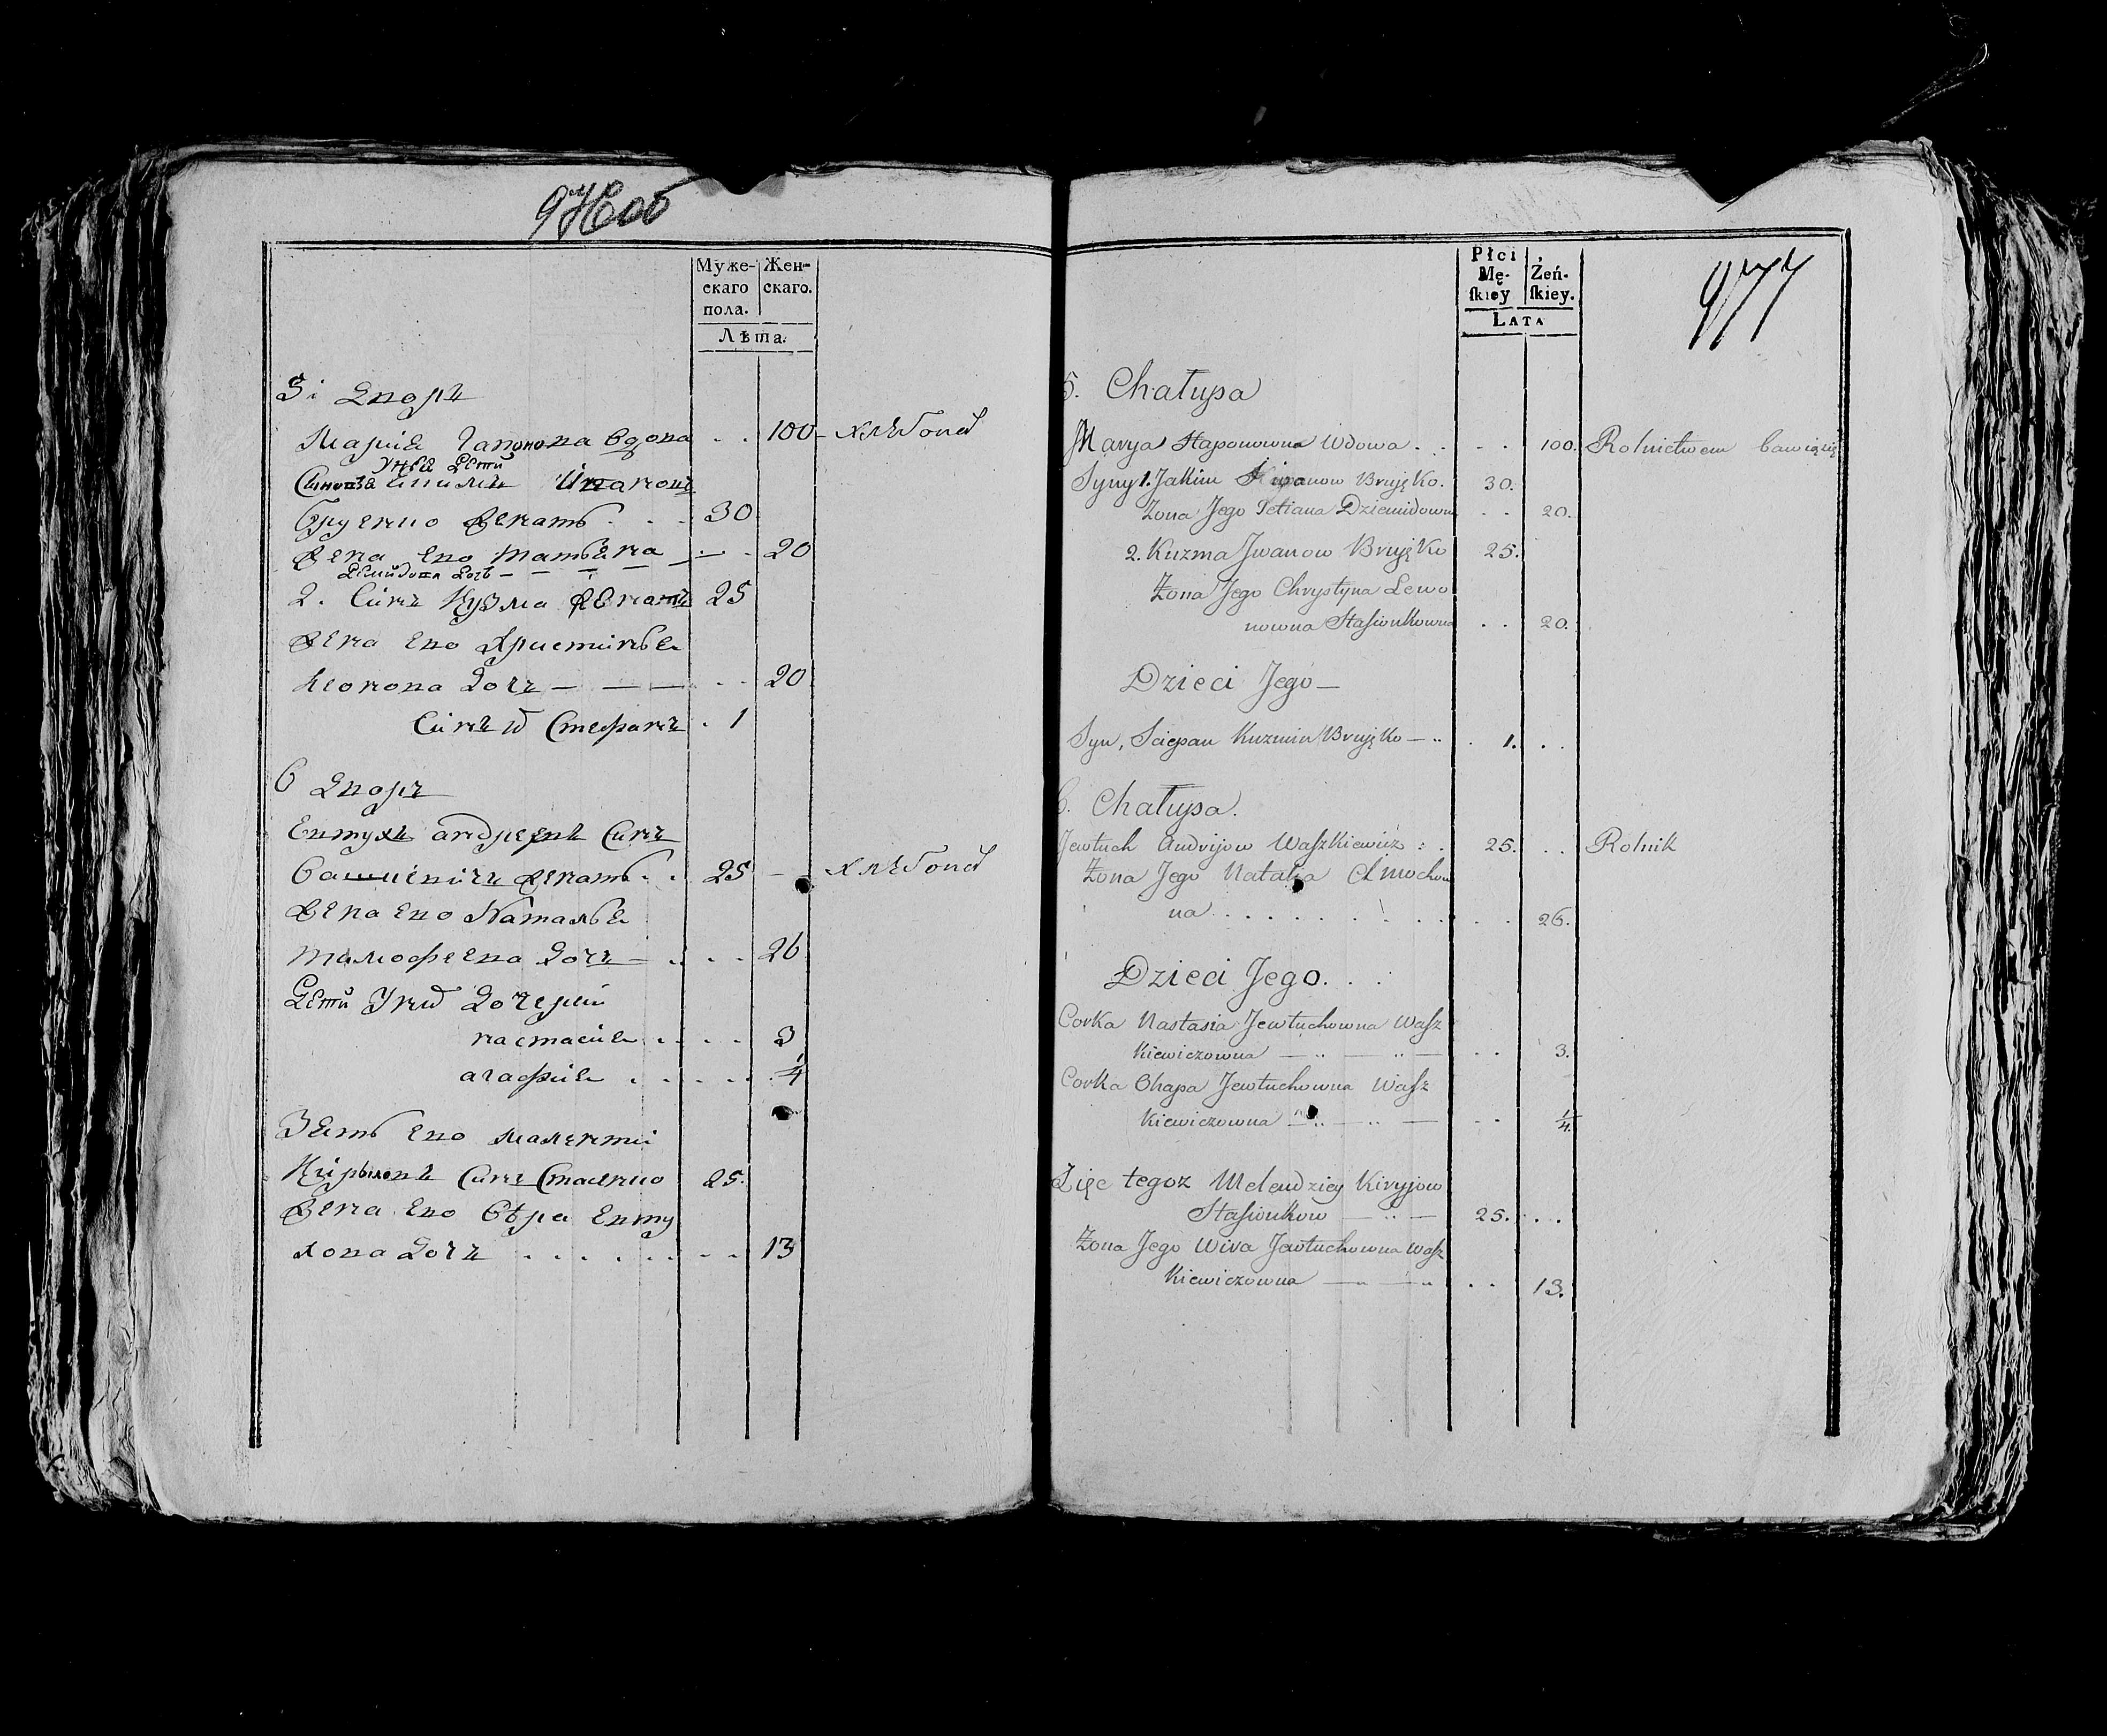 Муже-
скаго
пола.
Жен-
скаго.
Лѣта.
5 Дворъ
Марія Гапонова вдова . . 100 хлѣбопа
У нея дети
Синовя Иванов
Бруенко женатъ . . . 30
Жена его татьяна — . 20
Демидова дочь — — — —
2. Синъ Кузма женатъ 25
жена его Христинья
Леонова дочъ — — — . . 20
Синъ Стефанъ . 1
6 Дворъ
Евтухъ андреевъ Синъ
Вашкевичъ женатъ . . 25 — хлѣбопа
Жена его Наталья
тимофеева дочъ — . . . . 26
Дети дочери
настасия . . . . 3
агафия . . . . . . 1/4
Зять его
Синъ Стасенко 25.
Жена его Вѣра Евту
хова дочъ . . . . . . . . 13
Płci
Mę-
skiey
Żeń-
skiey.
LATA
977
5. Chałupa
Marya Haponowna Wdowa . . . . 100. Rolnictwem bawią się
Syny 1. Jakim Iwanow Brujęko. 30.
Żona Jego Tetiana Dziemidowna . . 20.
2. Kuzma Jwanow Brujęko 25.
Żona Jego Chrystyna Lewo
nowna Stasionkowna . . 20.
Dzieci Jego —
Syn, Sciepan Kuzmin Brujęko — . 1. . .
6. Chałupa.
Jewtuch Andrijow Waszkiewicz : . 25. . . Rolnik
Żona Jego Natalia Cimochow
na . . . . . . . . . . . 26.
Dzieci Jego . . .
Corka Nastasia Jewtuchowna Wasz
kiewiczowna — — — . . 3.
Corka Ohapa Jewtuchowna Wasz
kiewiczowna — — — . . 1/4.
Zięc tegoz Melendziey Kiryjow
Stasionkow — — 25. . .
Żona Jego Wira Jewtuchowna Wasz
kiewiczowna — — . . 13.